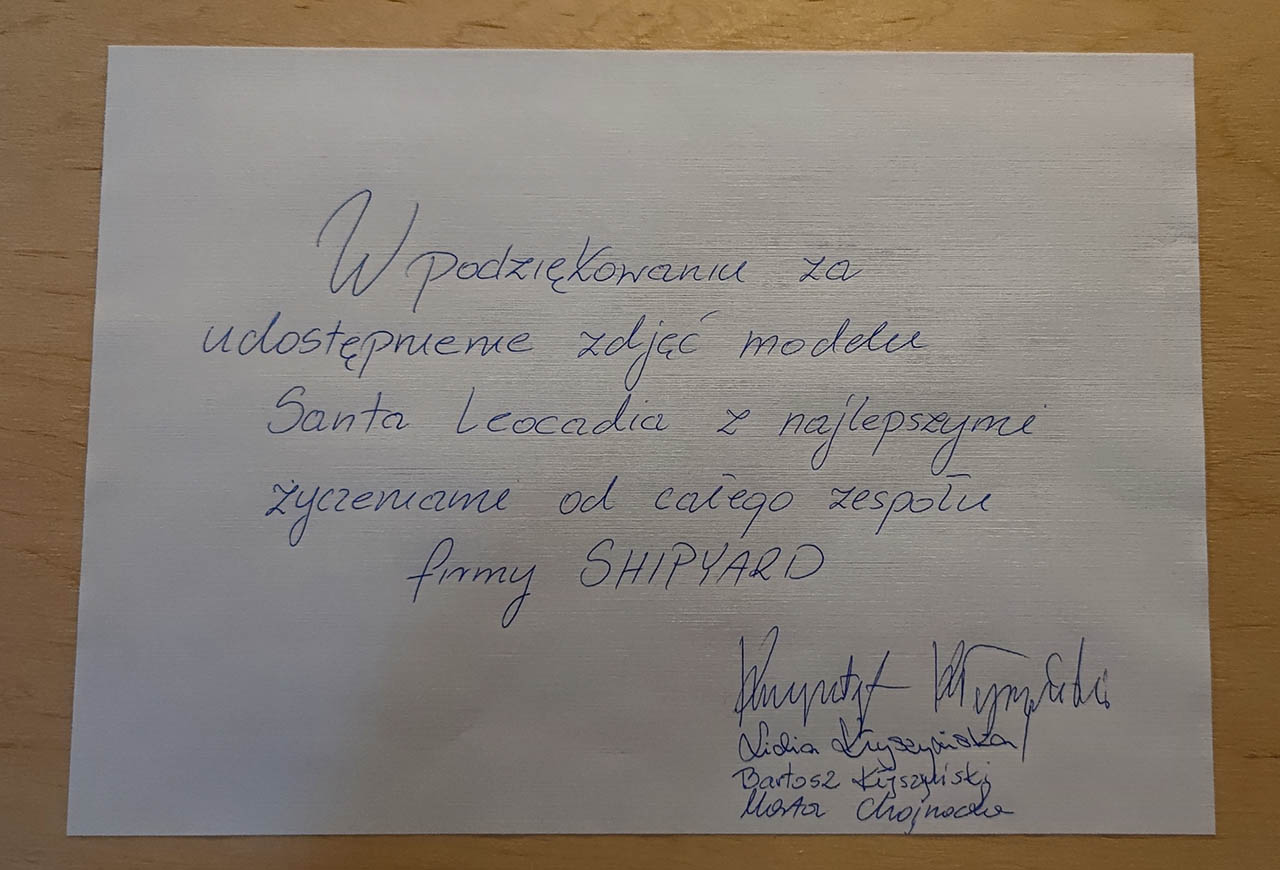 W podziękowaniu za
udostępnienie zdjęć modelu
Santa Leocadia z najlepszymi
życzeniami od całego zespołu
firmy SHIPYARD
Krzysztof
Lidia
Bartosz
Marta Chojnacka